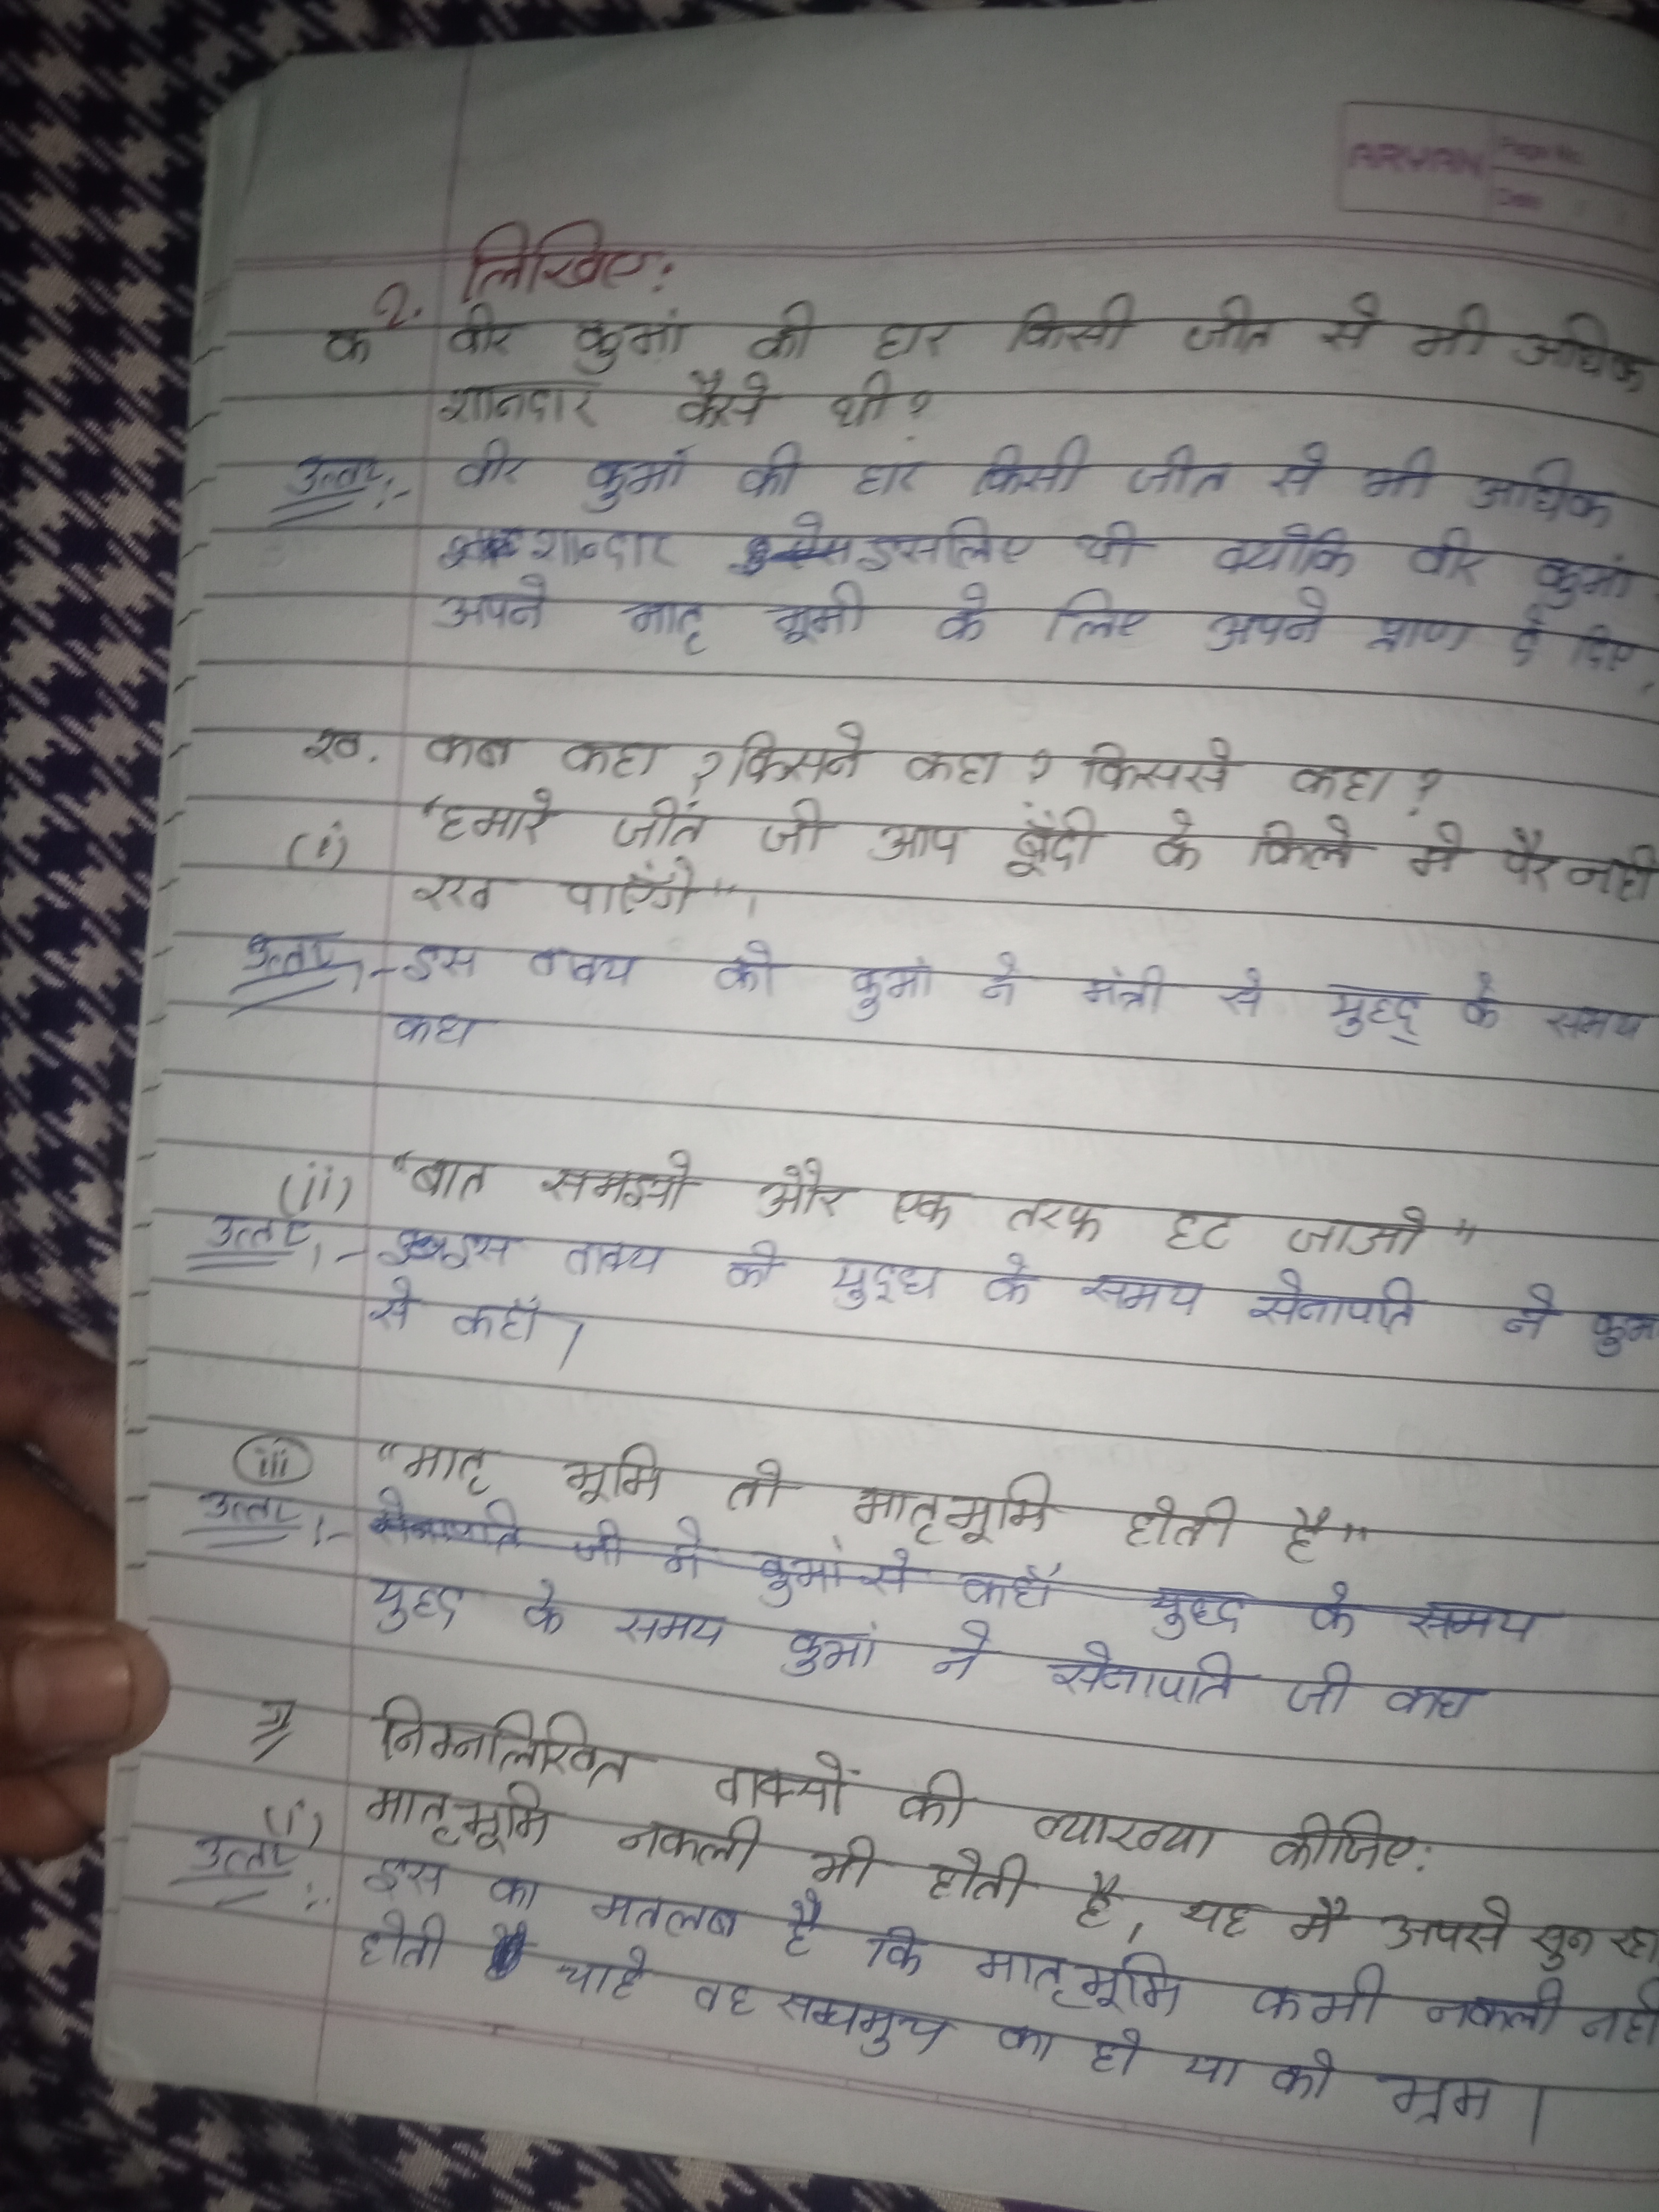 ARYAN
Page No.
Date
2. लिखिए:
क वीर कुमां की हार किसी जीत से भी अधिक
शानदार कैसे थी?
उत्तर:- वीर कुमां की हार किसी जीत से भी अधिक
शान्दार इसलिए थी क्योकि वीर कुमां
अपने मातृ भूमी के लिए अपने प्राण दे दिए,
ख. कब कहा ? किसने कहा ? किससे कहा ?
(i) "हमारे जीत जी आप बूँदी के किले मे पैर नही
रख पाएँगे"।
उत्तर:- इस वाक्य को कुमां ने मंत्री से युद्द के समय
कहा
(ii) "बात समझो और एक तरफ हट जाओ"
उत्तर:- इस वाक्य को युद्ध के समय सेनापति ने कुम
से कहाँ।
iii "मातृ भूमि तो मातृभूमि होती है"
उत्तर:- सेनापति जी ने कुमां से कहाँ युद्द के समय
युद्द के समय कुमां ने सेनापति जी कहा
ग निम्नलिखित वाक्यों की व्याख्या कीजिए:
(i) मातृभूमि नकली भी होती है, यह मै अपसे सुन रहा
उत्तर:- इस का मतलब है कि मातृभूमि कभी नकली नही
होती चाहे वह सचमुच का हो या को भ्रम।